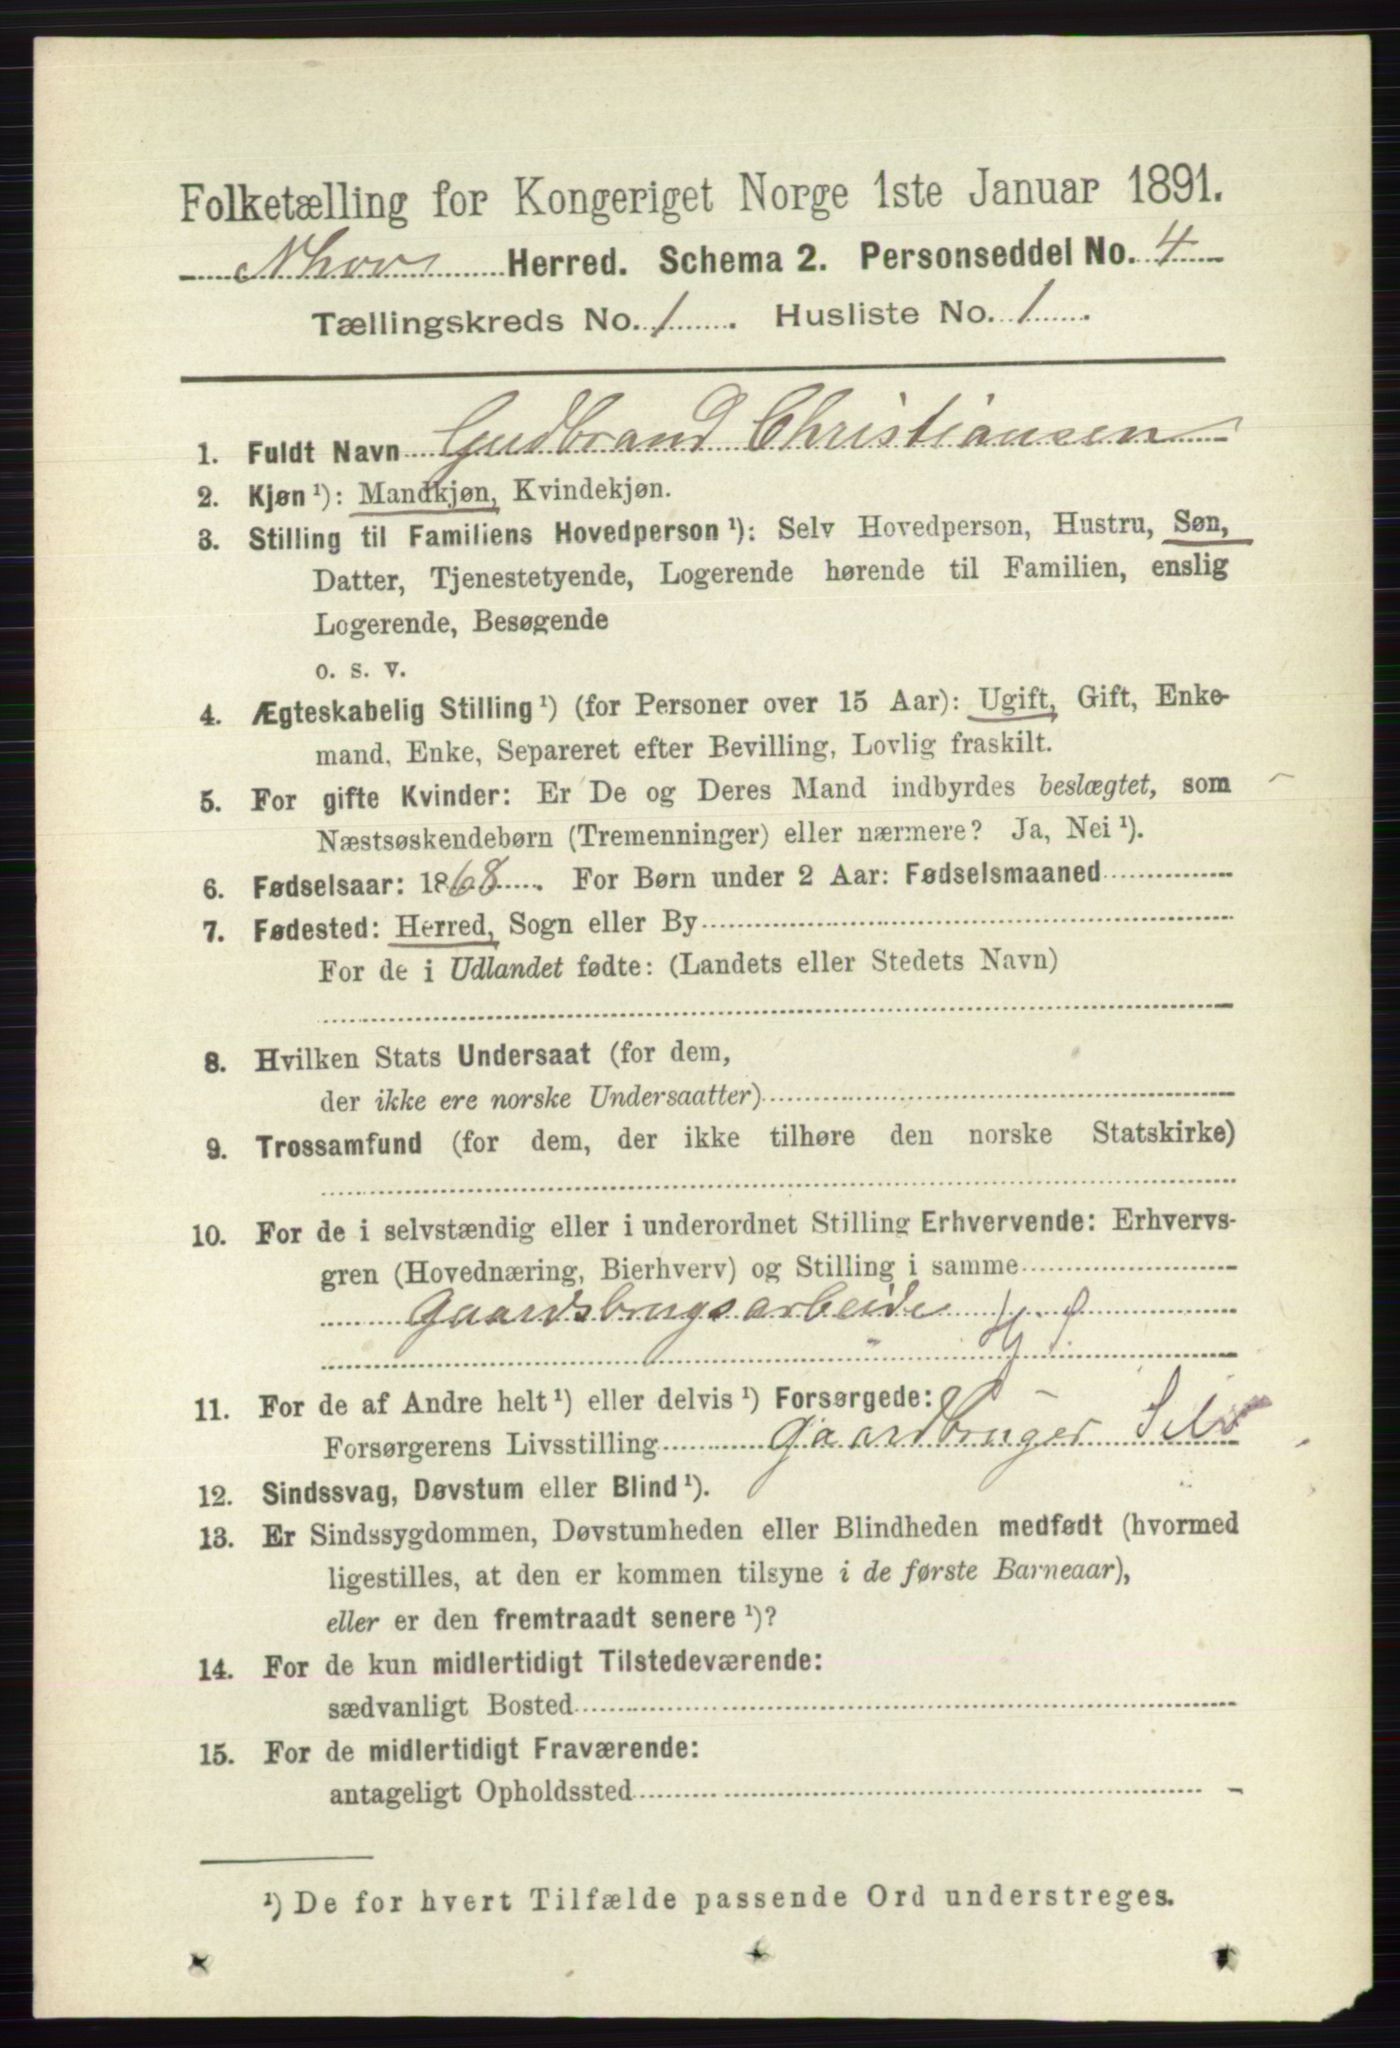 Folketælling for Kongeriget Norge 1ste Januar 1891.
Herred. Schema 2. Personseddel No. 4
Tællingskreds No. 1. Husliste No. 1.
1. Fuldt Navn Gudbrand Christiansen
2. Kjøn ¹): Mandkjøn, Kvindekjøn.
3. Stilling til Familiens Hovedperson ¹): Selv Hovedperson, Hustru, Søn,
Datter, Tjenestetyende, Logerende hørende til Familien, enslig
Logerende, Besøgende
o. s. v.
4. Ægteskabelig Stilling ¹) (for Personer over 15 Aar): Ugift, Gift, Enke-
mand, Enke, Separeret efter Bevilling, Lovlig fraskilt.
5. For gifte Kvinder: Er De og Deres Mand indbyrdes beslægtet, som
Næstsøskendebørn (Tremenninger) eller nærmere? Ja, Nei ¹).
6. Fødselsaar: 1868. For Børn under 2 Aar: Fødselsmaaned
7. Fødested: Herred, Sogn eller By
For de i Udlandet fødte: (Landets eller Stedets Navn)
8. Hvilken Stats Undersaat (for dem,
der ikke ere norske Undersaatter)
9. Trossamfund (for dem, der ikke tilhøre den norske Statskirke)
10. For de i selvstændig eller i underordnet Stilling Erhvervende: Erhvervs-
gren (Hovednæring, Bierhverv) og Stilling i samme
Gaardsbrugsarbeide
11. For de af Andre helt ¹) eller delvis ¹) Forsørgede:
Forsørgerens Livsstilling Gaardbruger Selv
12. Sindssvag, Døvstum eller Blind ¹).
13. Er Sindssygdommen, Døvstumheden eller Blindheden medfødt (hvormed
ligestilles, at den er kommen tilsyne i de første Barneaar),
eller er den fremtraadt senere ¹)?
14. For de kun midlertidigt Tilstedeværende:
sædvanligt Bosted
15. For de midlertidigt Fraværende:
antageligt Opholdssted
¹) De for hvert Tilfælde passende Ord understreges.